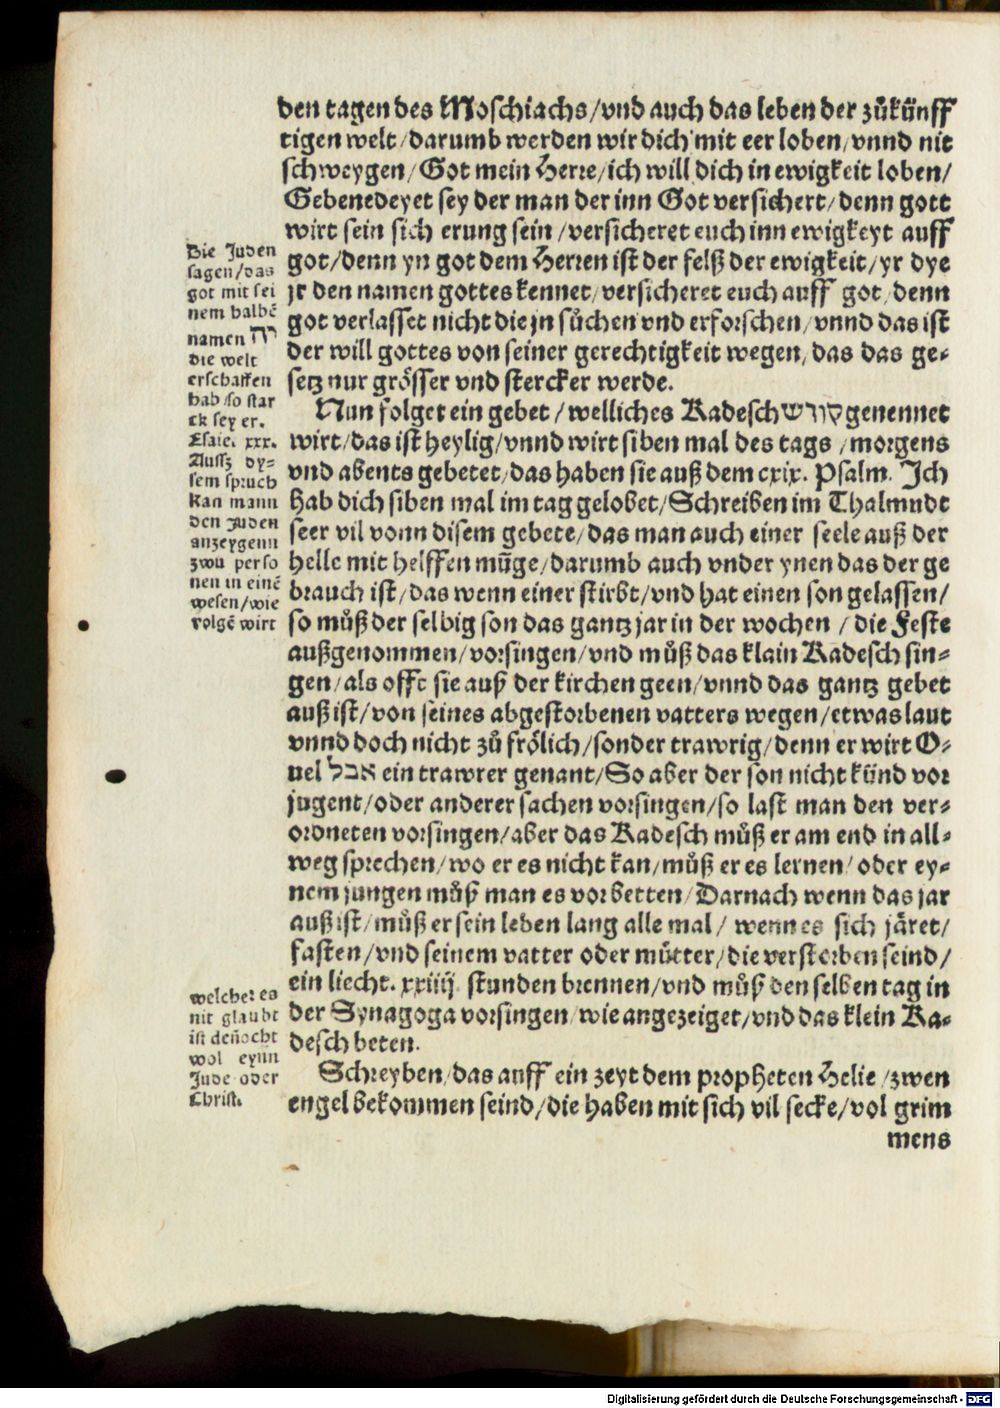 den tagen des Moschiachs/vnd auch das leben der zůkünff
tigen welt/darumb werden wir dich mit eer loben/vnnd nit
schweygen/Got mein Herre/ich will dich in ewigkeit loben/
Gebenedeyet sey der man der inn Got versichert/denn gott
wirt sein sich erung sein/versicheret euch inn ewigkeyt auff
got/denn yn got dem Herren ist der felß der ewigkeit/yr dye
jr den namen gottes kennet/versicheret euch auff got/denn
got verlasset nicht die jn sůchen vnd erforschen/vnnd das ist
der will gottes von seiner gerechtigkeit wegen/das das ge⸗
setz nur grösser vnd stercker werde.
Die Juden
sagen/das
got mit sei
nem halbē
namen יה
die welt
erschaffen
hab/so star
ck sey er.
Esaie. xxx.
Aussz dy⸗
sem spruch
kan mann
den Juden
anzeygenn
zwu perso
nen in einē
wesen/wie
volgē wirt
Nun folget ein gebet/welliches Kadesch קודש genennet
wirt/das ist heylig/vnnd wirt siben mal des tags/morgens
vnd abents gebetet/das haben sie auß dem cxix. Psalm. Ich
hab dich siben mal im tag gelobet/Schreiben im Thalmudt
seer vil vonn disem gebete/das man auch einer seele auß der
helle mit helffen müge/darumb auch vnder ynen das der ge
brauch ist/das wenn einer stirbt/vnd hat einen son gelassen/
so můß der selbig son das gantz jar in der wochen/die Feste
außgenommen/vorsingen/vnd můß das klain Kadesch sin⸗
gen/als offt sie auß der kirchen geen/vnnd das gantz gebet
auß ist/von seines abgestorbenen vatters wegen/etwas laut
vnnd doch nicht zů frölich/sonder trawrig/denn er wirt O⸗
uel אבל ein trawrer genant/So aber der son nicht künd vor
jugent/oder anderer sachen vorsingen/so last man den ver⸗
ordneten vorsingen/aber das Kadesch můß er am end in all⸗
weg sprechen/wo er es nicht kan/můß er es lernen/oder ey⸗
nem jungen můß man es vorbetten/Darnach wenn das jar
auß ist/můß er sein leben lang alle mal/wenn es sich järet/
fasten/vnd seinem vatter oder můtter/die verstorben seind/
ein liecht. xxiiij. stunden brennen/vnd můß den selben tag in
der Synagoga vorsingen/wie angezeiget/vnd das klein Ka⸗
desch beten.
welcher es
nit glaubt
ist deñocht
wol eynn
Jude oder
Christ.
Schreyben/das auff ein zeyt dem propheten Helie/zwen
engel bekommen seind/die haben mit sich vil secke/vol grim
mens
Digitalisierung gefördert durch die Deutsche Forschungsgemeinschaft - DFG